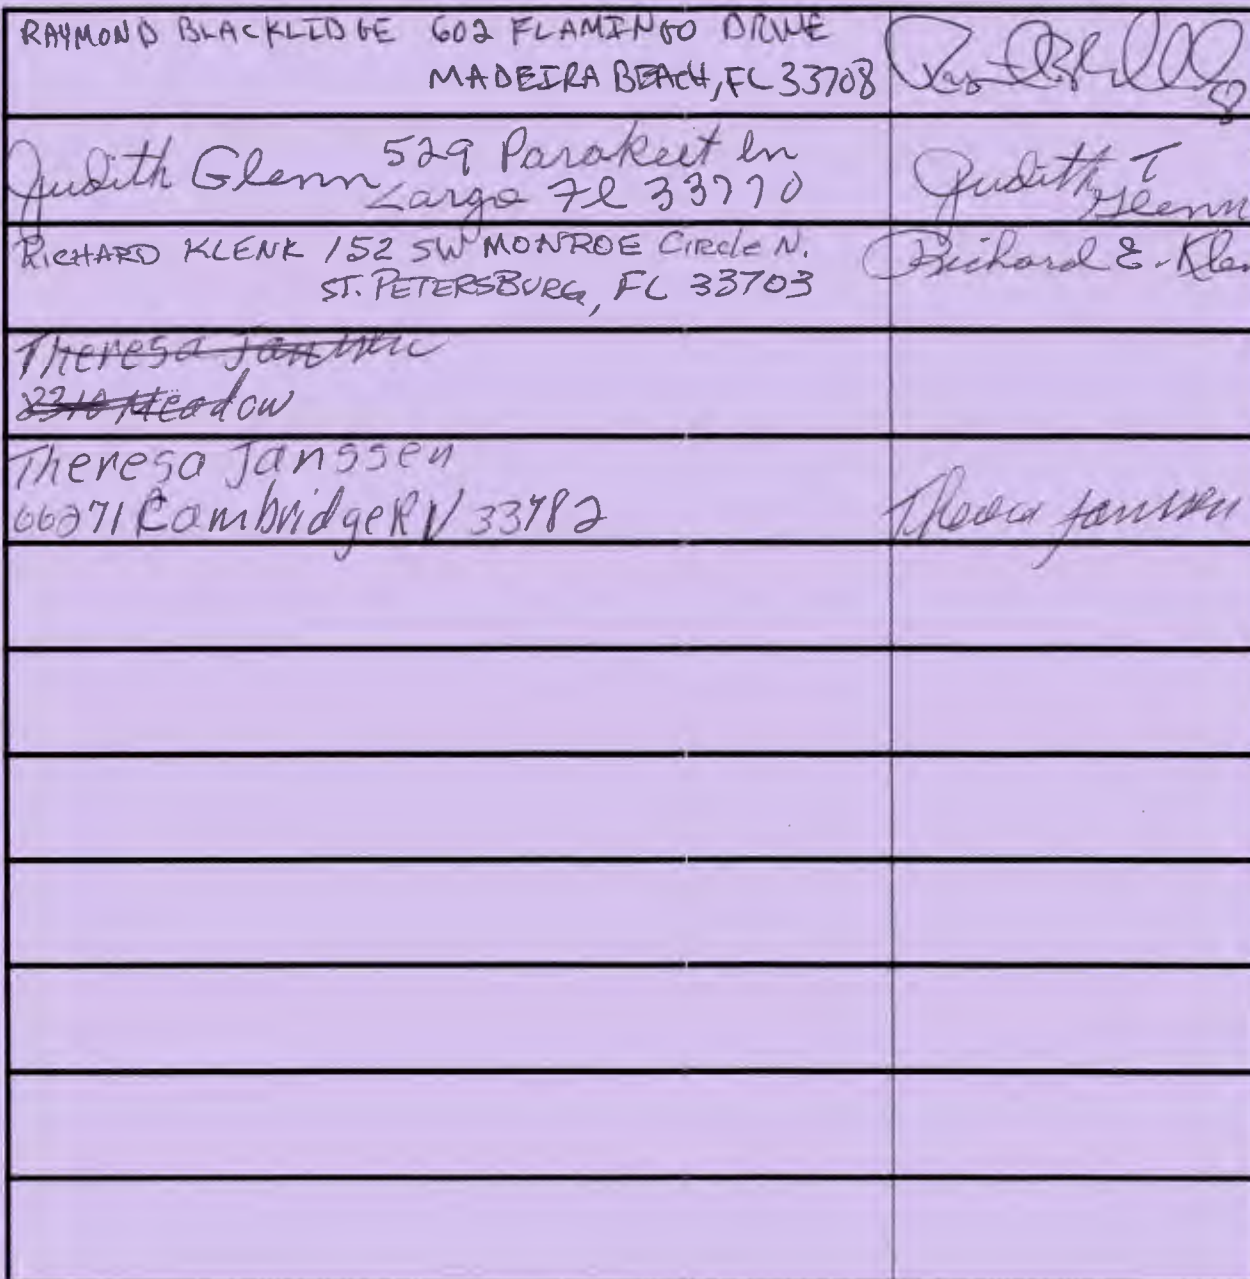 RAYMOND BLACKLIDGE 602 FLAMINGO DRIVE
MADEIRA BEACH, FL 33708
Judith Glenn 529 Parakeet Ln
Largo Fl 33770
Judith T
Glenn
RICHARD KLENK 152 SW MONROE Circle N.
ST. PETERSBURG, FL 33703
Richard E. Kle
Theresa
Meadow
Theresa Janssen
Cambridge 33782
Theresa Janssen